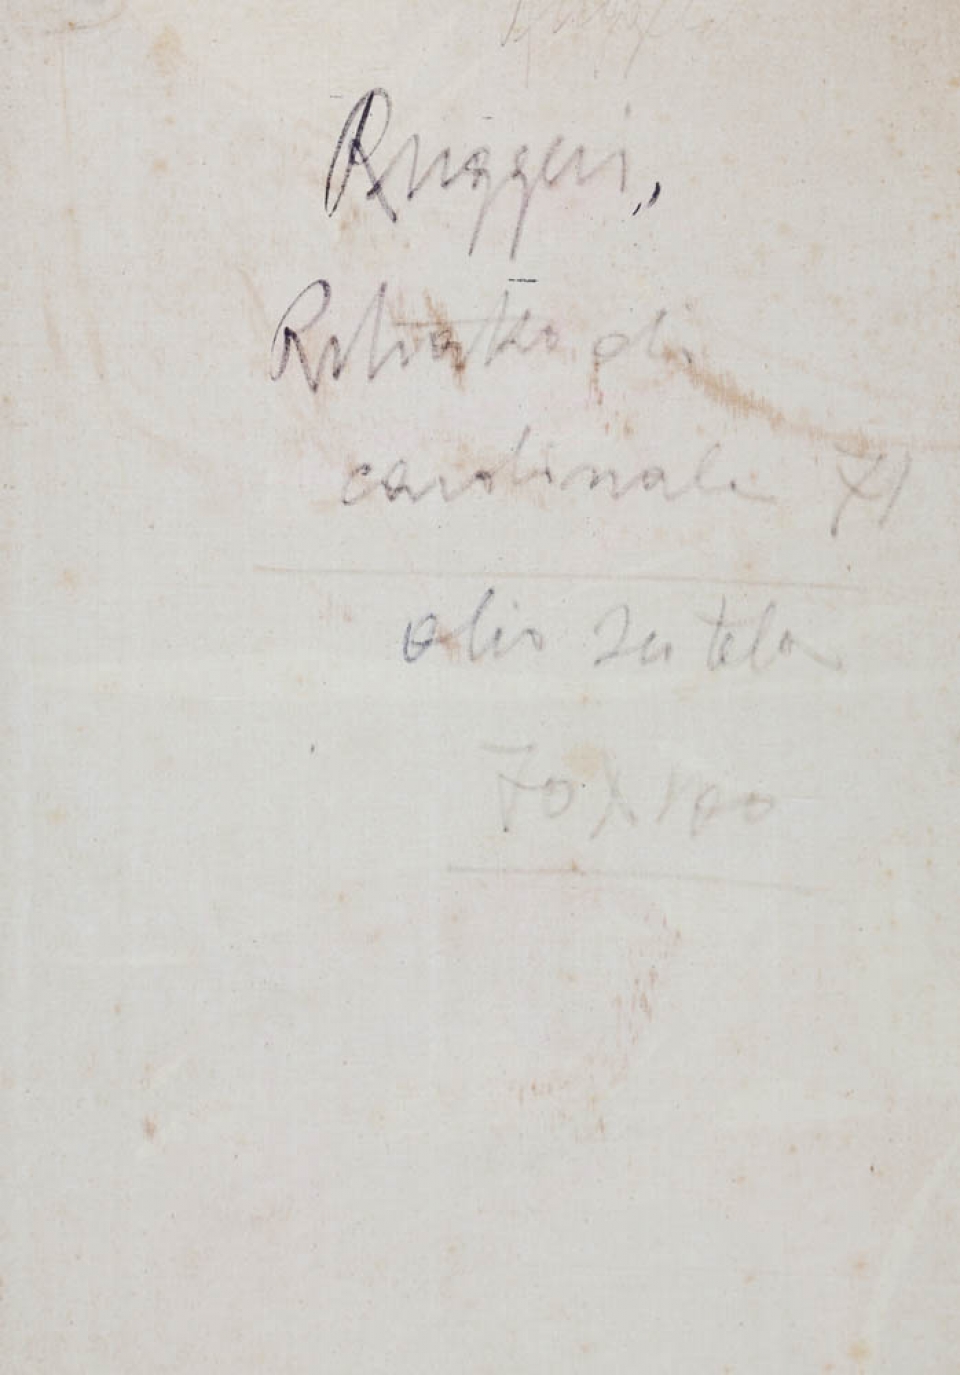 Ruggeri,
Ritratto di
cardinale 71
olio su tela
70x100